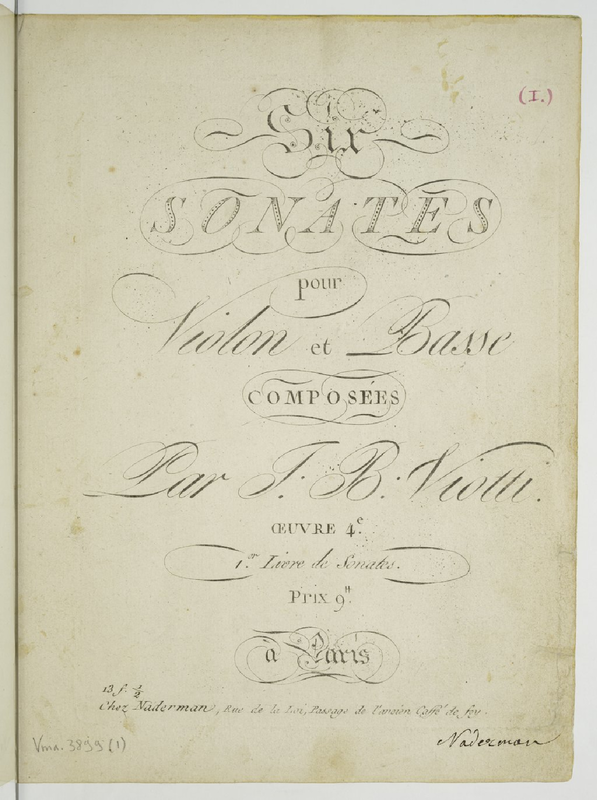 (I.)
Six
SONATES
pour
Violon et Basse
COMPOSÉES
Par J. B. Viotti.
ŒUVRE 4.e
1.er Livre de Sonates.
Prix 9.tt
à Paris
13 f. 1/2
Chez Naderman, Rue de la Loi, Passage de l'ancien Caffé de foy.
Naderman
Vma. 3899 (1)